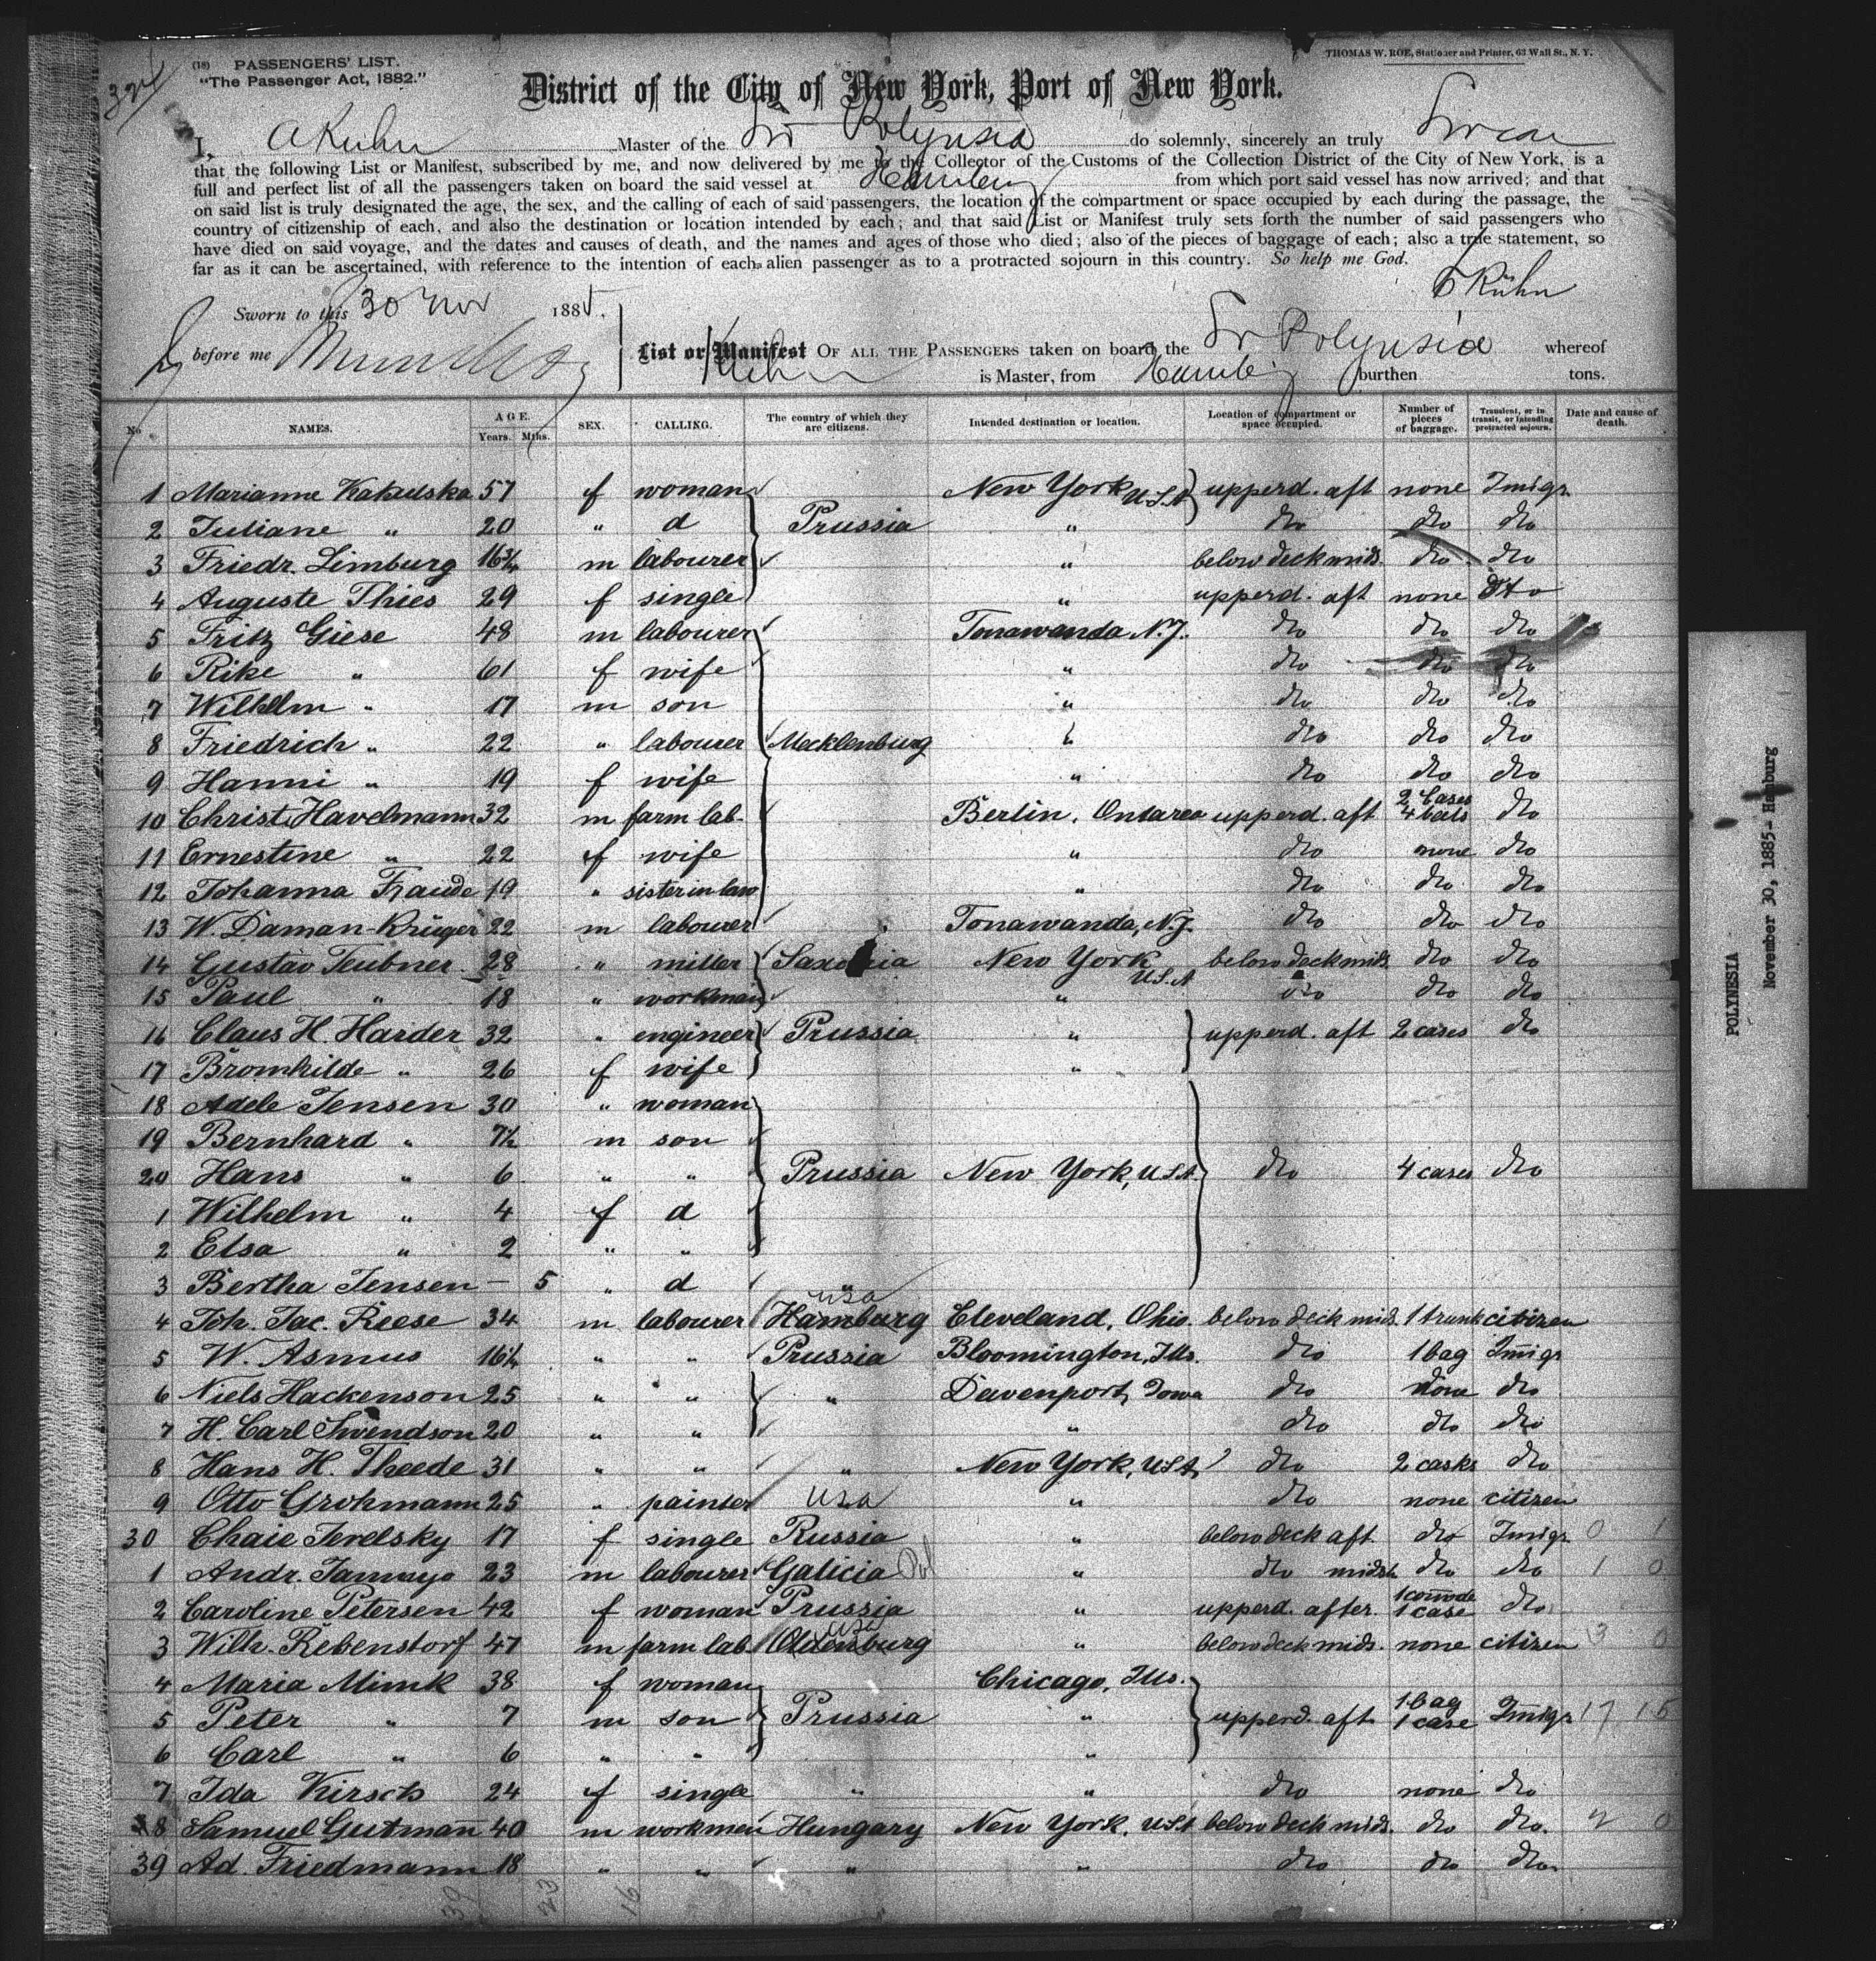 324
(18) PASSENGERS' LIST.
"The Passenger Act, 1882."
THOMAS W. ROE, Stationer and Printer, 63 Wall St., N. Y.
District of the City of New York, Port of New York.
I, A Kuhn Master of the Sr Polynsia do solemnly, sincerely an truly Swear
that the following List or Manifest, subscribed by me, and now delivered by me to the Collector of the Customs of the Collection District of the City of New York, is a
full and perfect list of all the passengers taken on board the said vessel at Hamburg from which port said vessel has now arrived; and that
on said list is truly designated the age, the sex, and the calling of each of said passengers, the location of the compartment or space occupied by each during the passage, the
country of citizenship of each, and also the destination or location intended by each; and that said List or Manifest truly sets forth the number of said passengers who
have died on said voyage, and the dates and causes of death, and the names and ages of those who died; also of the pieces of baggage of each; also a true statement, so
far as it can be ascertained, with reference to the intention of each alien passenger as to a protracted sojourn in this country. So help me God.
Kühn
Sworn to this 30 Nov 1885.
before me
List or Manifest OF ALL THE PASSENGERS taken on board the Sr Polynsia whereof
Kuhn is Master, from Hamburg burthen tons.
No NAMES. AGE. Years. Mths. SEX. CALLING. The country of which they are citizens. Intended destination or location. Location of compartment or space occupied. Number of pieces of baggage. Transient, or in transit, or intending protracted sojourn. Date and cause of death.
1 Marianne Kakulska 57 f woman New York U.S.A upperd. aft none Imigr.
2 Juliane " 20 " d Prussia " do do do
3 Friedr. Limburg 16 3/4 m labourer " below deck mids. do do
4 Auguste Thies 29 f single " upperd. aft none do
5 Fritz Giese 48 m labourer Tonawanda N.J. do do do
6 Rike " 61 f wife " do do do
7 Wilhelm " 17 m son " do do do
8 Friedrich " 22 " labourer Mecklenburg " do do do
9 Hanni " 19 f wife " do do do
10 Christ. Havelmann 32 m farm lab. Berlin, Ontareo upperd. aft 2 Cases 4 bails do
11 Ernestine " 22 f wife " do none do
12 Johanna Fraude 19 " sister in law " do do do
13 W. Daman-Krüger 22 m labourer Tonawanda, N.J. do do do
14 Gustav Teubner 28 " miller Saxonia New York U.S.A below deck mids. do do
15 Paul " 18 " workman " do do do
16 Claus H. Harder 32 " engineer Prussia " upperd. aft 2 cases do
17 Bromhilde " 26 f wife "
18 Adele Jensen 30 " woman
19 Bernhard " 7 1/2 m son
20 Hans " 6 " " Prussia New York, U.S.A. do 4 cases do
1 Wilhelm " 4 f d
2 Elsa " 2 " "
3 Bertha Jensen — 5 " d "
4 Joh. Jac. Reese 34 m labourer Hamburg USA Cleveland, Ohio. below deck mids. 1 trunk citizen
5 W. Asmus 16 1/2 " " Prussia Bloomington, Ills. do 1 bag Imigr
6 Niels Hackenson 25 " " " Davenport, Iowa do none do
7 H. Carl Swendson 20 " " " do do do
8 Hans H. Theede 31 " " " New York, U.S.A. do 2 casks do
9 Otto Grohmann 25 " painter USA " do none citizen
30 Chaie Jerelsky 17 f single Russia " below deck aft. do Imigr. 0 1
1 Andr. Jamayo 23 m labourer Galicia Pol " do midsh do do 1 0
2 Caroline Petersen 42 f woman Prussia " upperd. after. 1 comode 1 case do
3 Wilh. Rebenstorf 47 m farm lab. Oldenburg USA " below deck mids. none citizen 3 0
4 Maria Mimk 38 f woman Chicago, Ills.
5 Peter " 7 m son Prussia " upperd. aft 1 bag 1 case Imigr. 17 15
6 Carl " 6 " " "
7 Ida Kirsch 24 f single " " do none do
38 Samuel Gutmann 40 m workmen Hungary New York, U.S.A below deck mids. do do. 2 0
39 Ad. Friedmann 18 " " " " do do do
39 23 16
POLYNESIA
November 30, 1885- Hamburg